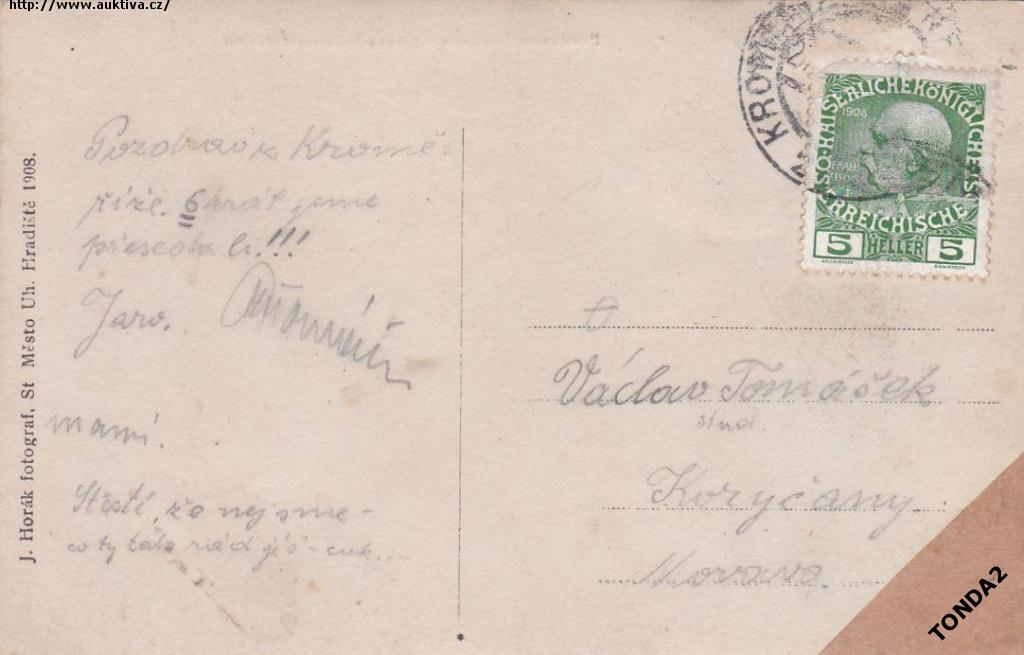 http://www.auktiva.cz/
J. Horák fotograf, St Město Uh. Hradiště 1908.
Pozdrav z Kromě-
říže. 6 krát jsme
přesedali!!!
Jaro.
mami.
Štěstí, že nejsme –
co ty tak rád jíš – cuk...
KROM
1908
ÖSTERREICHISCHE
SO-KAISERLICHEKÖNIGLICHE
5 HELLER 5
Václav Tomášek
stud.
Koryčany
Morava.
TONDA2